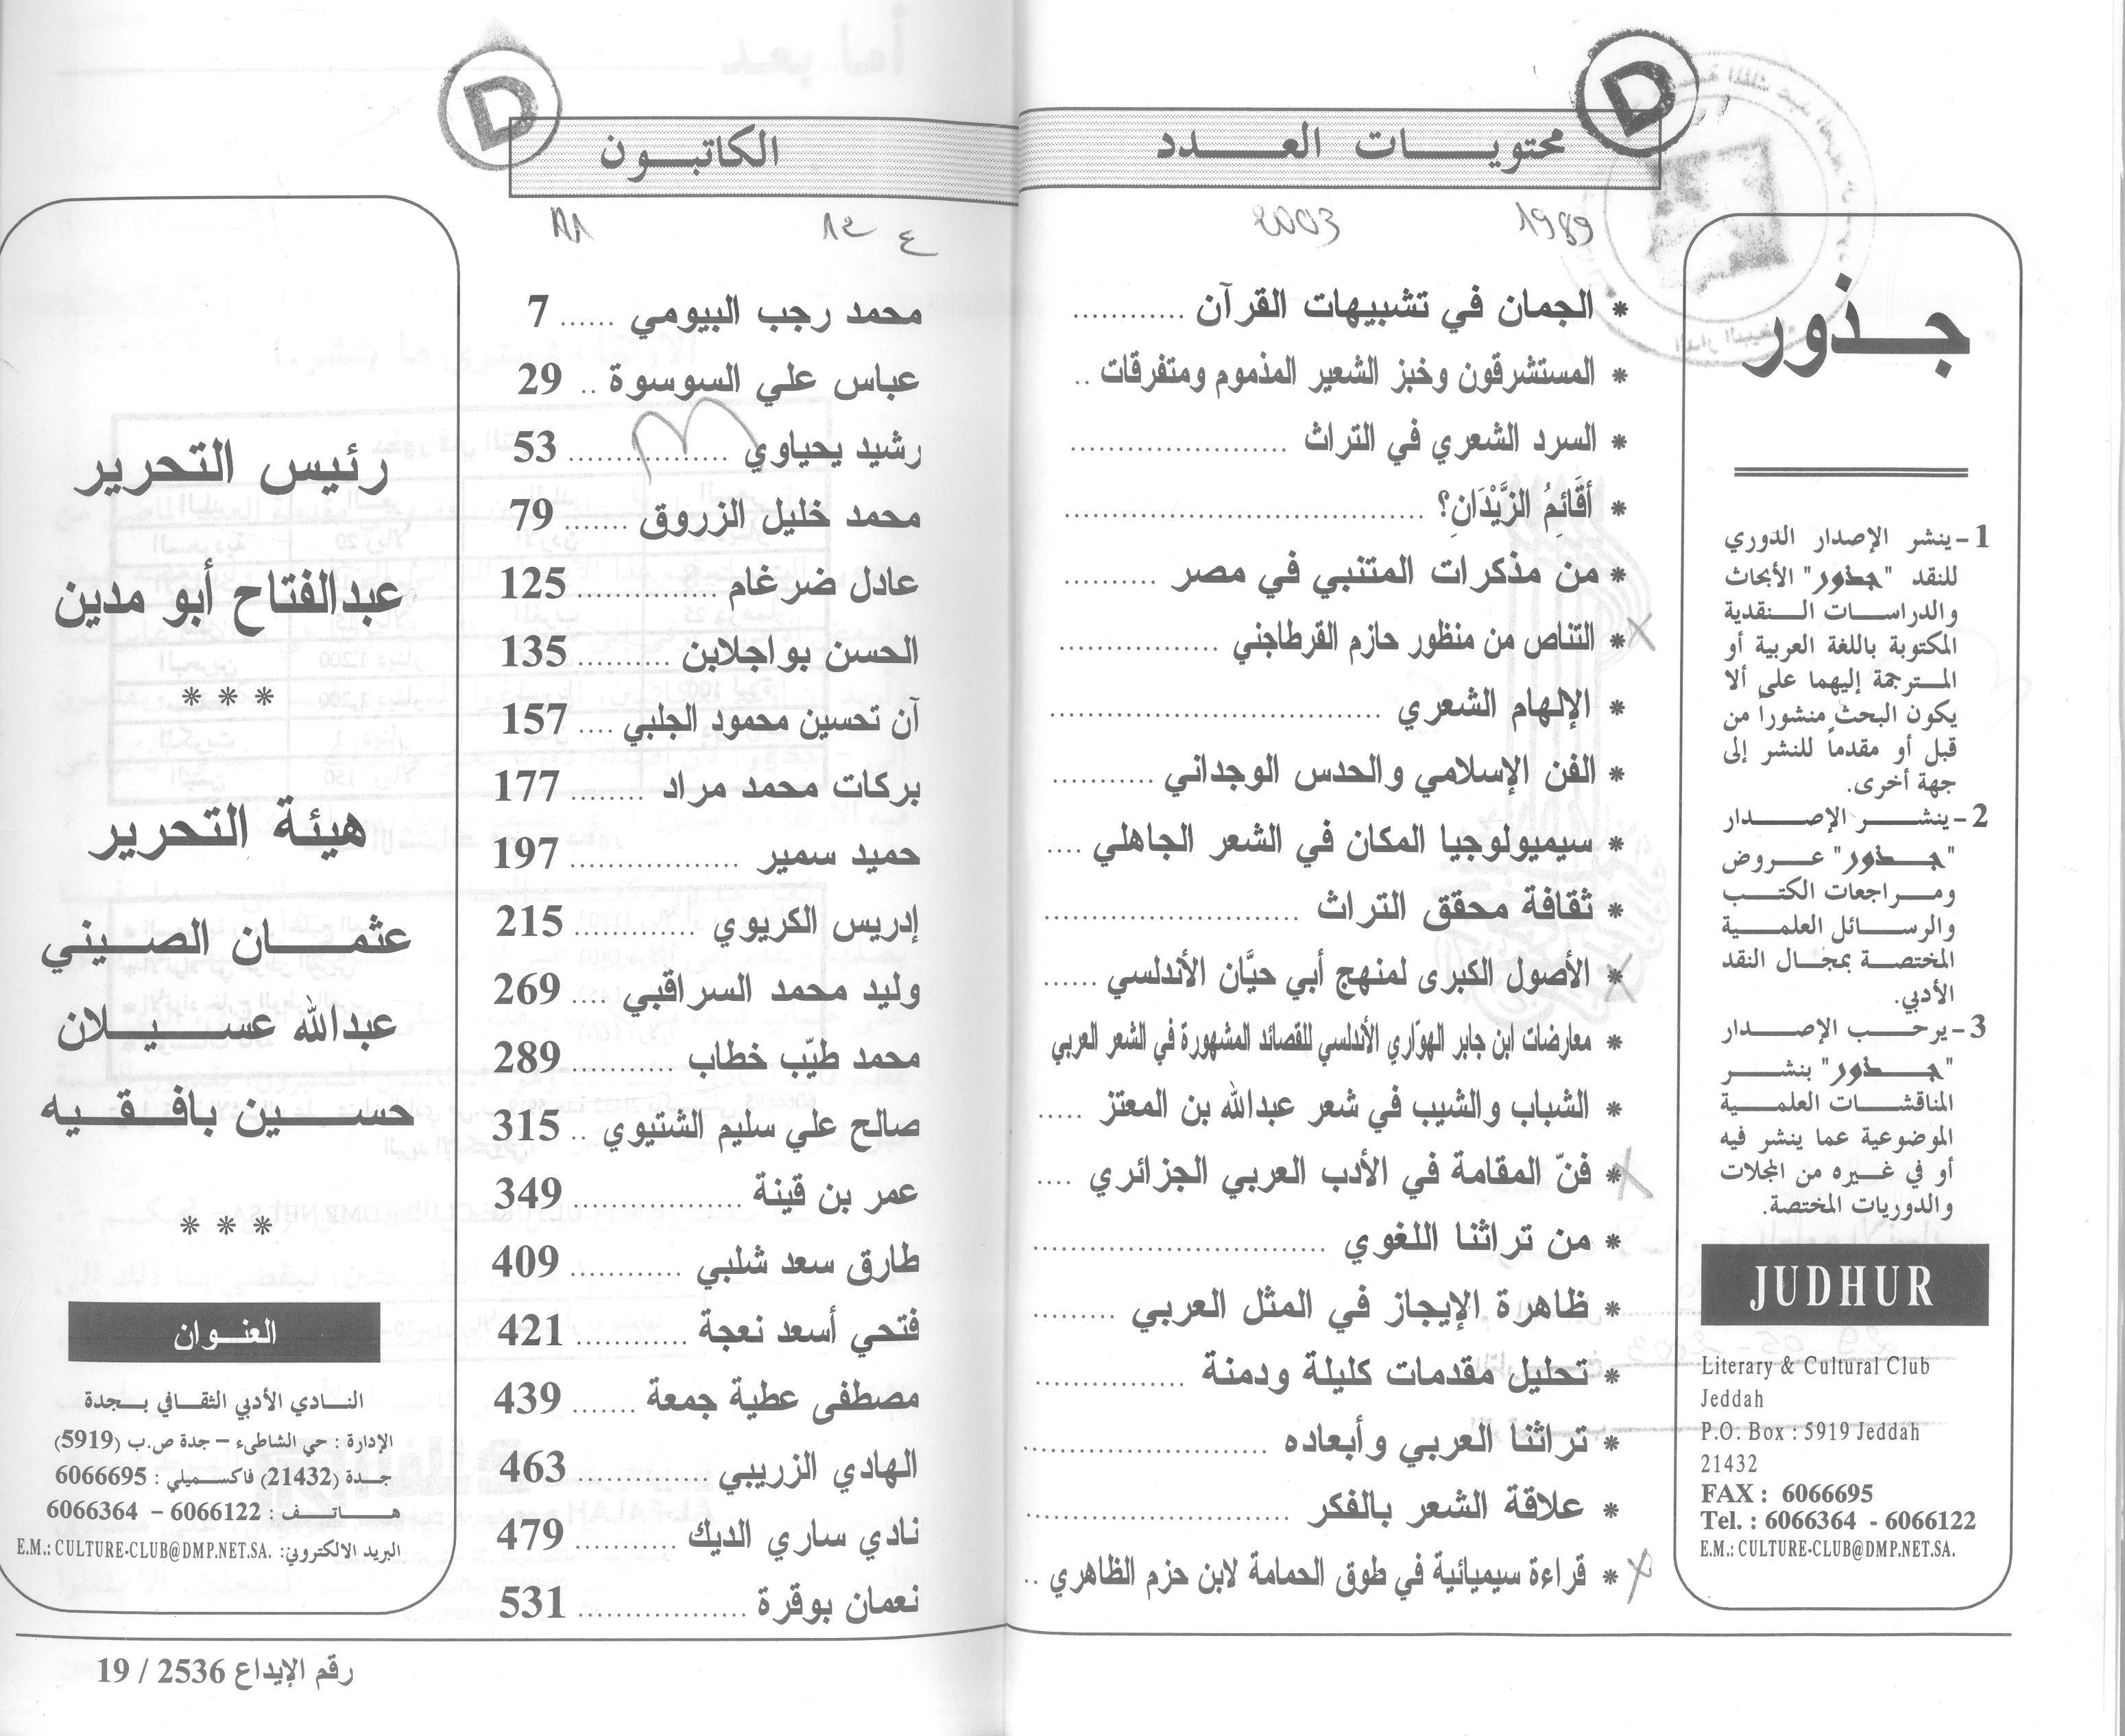 محتويات العدد
الكاتبون
D
D
1989
2003
جذور
1- ينشر الإصدار الدوري
للنقد "جذور" الأبحاث
والدراسات النقدية
المكتوبة باللغة العربية أو
المترجمة إليهما على ألا
يكون البحث منشوراً من
قبل أو مقدماً للنشر إلى
جهة أخرى.
2- ينشر الإصدار
"جذور" عروض
ومراجعات الكتب
والرسائل العلمية
المختصة بمجال النقد
الأدبي.
3- يرحب الإصدار
"جذور" بنشر
المناقشات العلمية
الموضوعية عما ينشر فيه
أو في غيره من المجلات
والدوريات المختصة.
JUDHUR
Literary & Cultural Club
Jeddah
P.O. Box : 5919 Jeddah
21432
FAX : 6066695
Tel. : 6066364 - 6066122
E.M.: CULTURE-CLUB@DMP.NET.SA.
* الجمان في تشبيهات القرآن ............ محمد رجب البيومي ...... 7
* المستشرقون وخبز الشعير المذموم ومتفرقات .. عباس علي السوسوة .. 29
* السرد الشعري في التراث ............ رشيد يحياوي ............ 53
* أقَائِمُ الزَّيْدَانِ؟ ............ محمد خليل الزروق ....... 79
* من مذكرات المتنبي في مصر .......... عادل ضرغام ............ 125
* التناص من منظور حازم القرطاجني ............ الحسن بواجلابن .......... 135
* الإلهام الشعري ............ آن تحسين محمود الجلبي .... 157
* الفن الإسلامي والحدس الوجداني ............ بركات محمد مراد ........ 177
* سيميولوجيا المكان في الشعر الجاهلي .... حميد سمير ............ 197
* ثقافة محقق التراث ............ إدريس الكريوي ............ 215
* الأصول الكبرى لمنهج أبي حيَّان الأندلسي ...... وليد محمد السراقبي .... 269
* معارضات ابن جابر الهوّاري الأندلسي للقصائد المشهورة في الشعر العربي محمد طيّب خطاب ............ 289
* الشباب والشيب في شعر عبدالله بن المعتز ..... صالح علي سليم الشتيوي .. 315
* فنّ المقامة في الأدب العربي الجزائري .... عمر بن قينة ............ 349
* من تراثنا اللغوي ............ طارق سعد شلبي ............ 409
* ظاهرة الإيجاز في المثل العربي ......... فتحي أسعد نعجة ............ 421
* تحليل مقدمات كليلة ودمنة ............ مصطفى عطية جمعة ....... 439
* تراثنا العربي وأبعاده ............ الهادي الزريبي ............ 463
* علاقة الشعر بالفكر ............ نادي ساري الديك ............ 479
* قراءة سيميائية في طوق الحمامة لابن حزم الظاهري .. نعمان بوقرة ............ 531
رئيس التحرير
عبدالفتاح أبو مدين
* * *
هيئة التحرير
عثمان الصيني
عبدالله عسيلان
حسين بافقيه
* * *
العنوان
النادي الأدبي الثقافي بجدة
الإدارة : حي الشاطىء – جدة ص.ب (5919)
جدة (21432) فاكسميلي : 6066695
هاتف : 6066122 – 6066364
البريد الالكتروني: E.M.: CULTURE-CLUB@DMP.NET.SA.
رقم الإيداع 2536 / 19